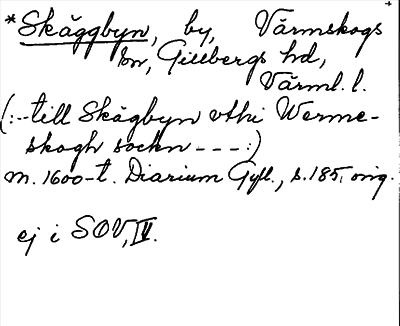 *Skäggbyn, by, Värmskogs
sn, Gillbergs hd,
Värml. l.
(:--till Skägbyn vthi Werme-
skogh sockn ---:)
m. 1600-t. Diarium Gyll., s. 185, orig.
ej i SOV, IV.